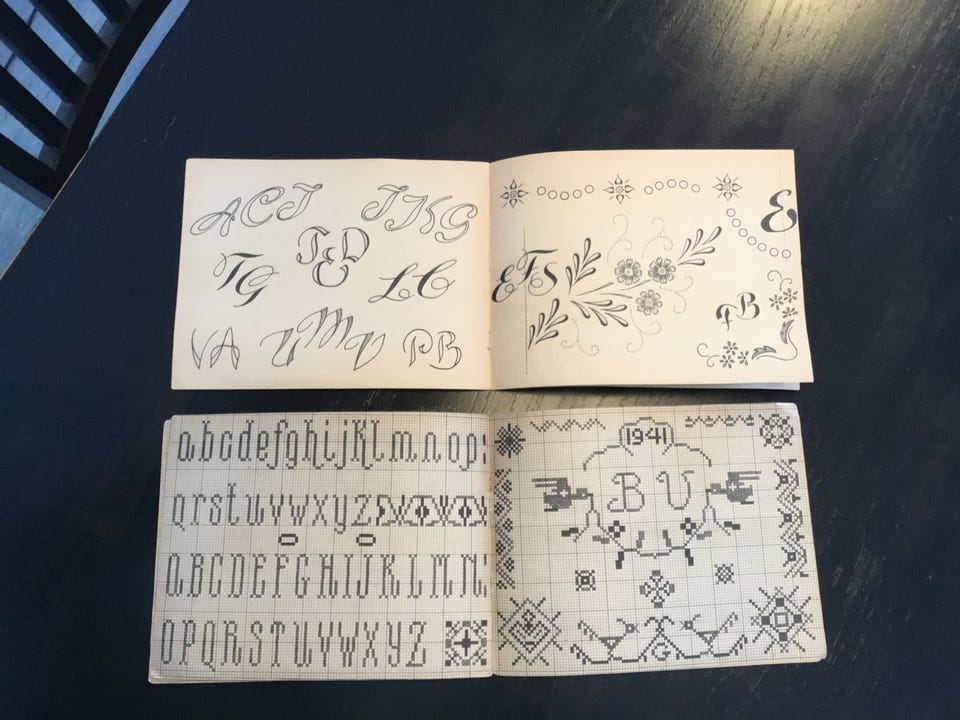 ACJ JKG
JED
TG LC
VA UMV PB
E
EFS
PB
abcdefghijklmnop
qrstuvwxyz
ABCDEFGHIJKLMN
OPQRSTUVWXYZ
1941
BU
G